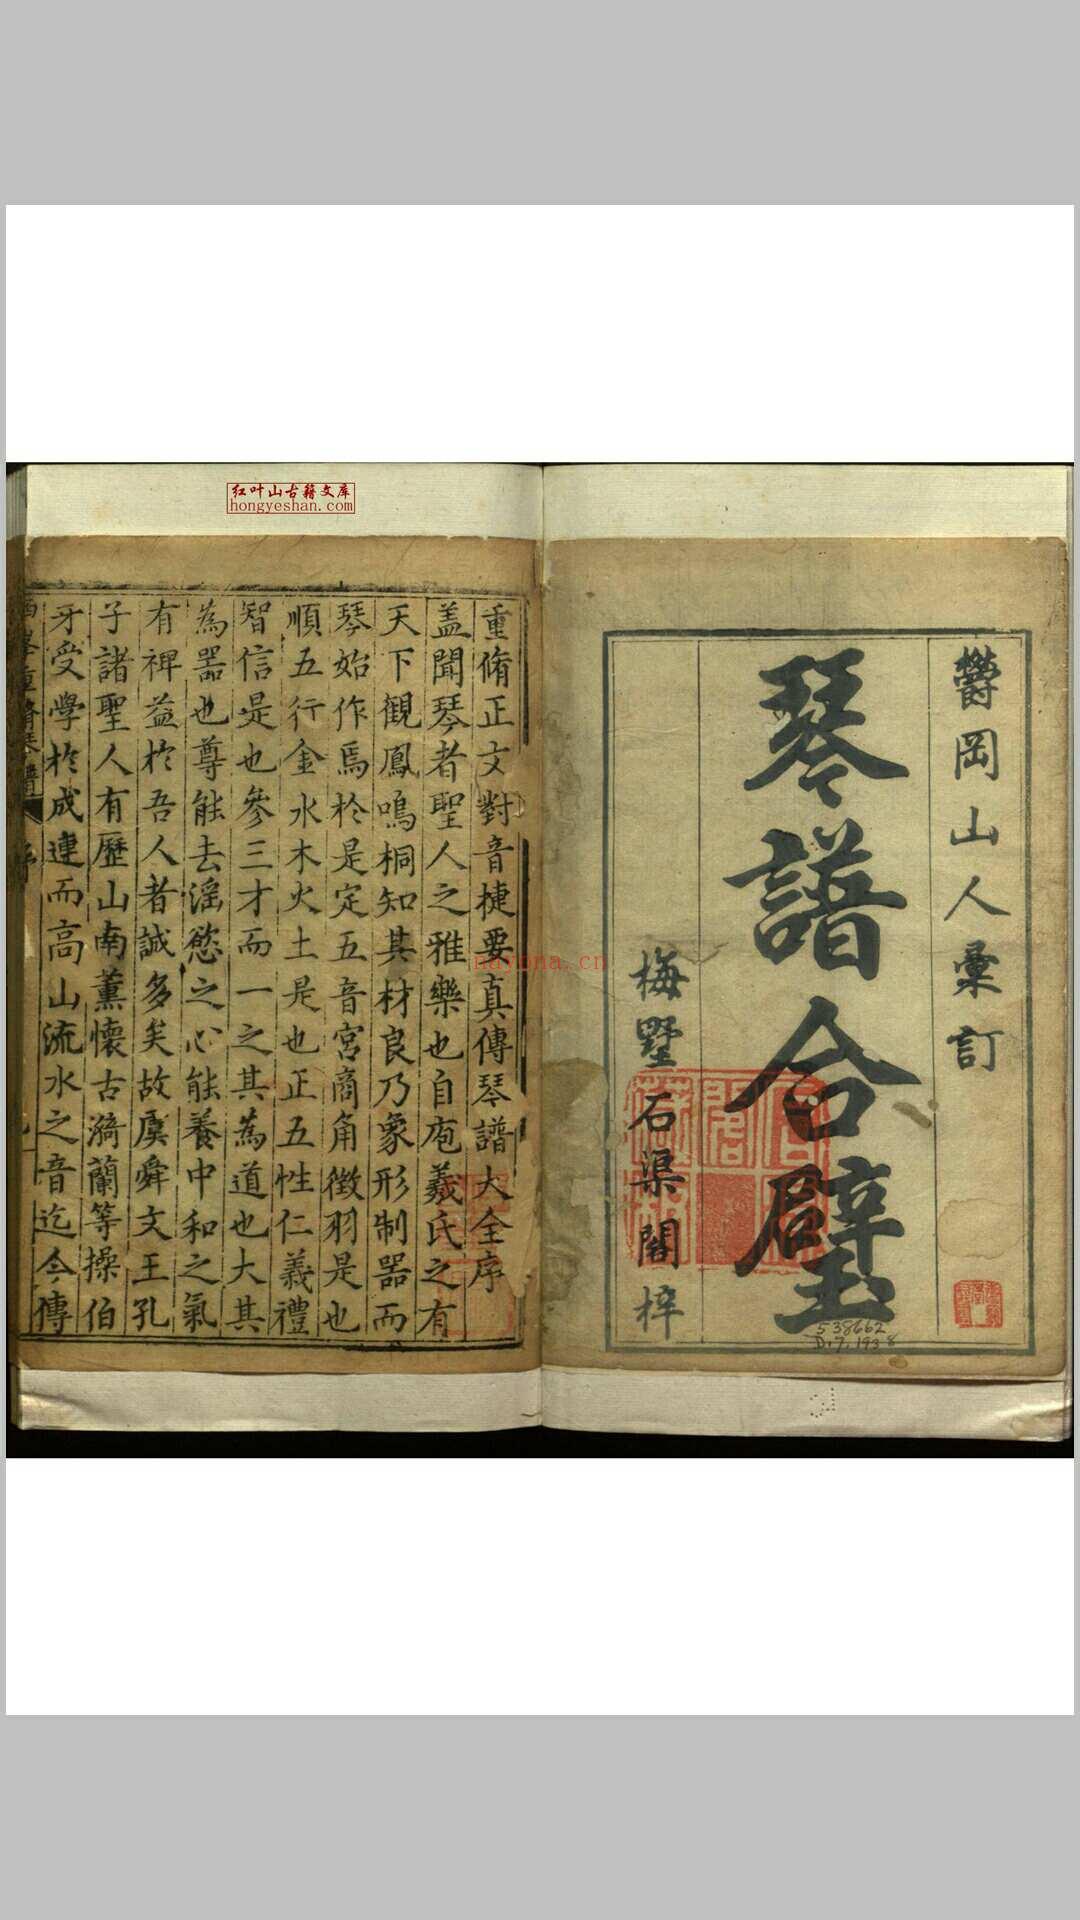 红叶山古籍文库
hongyeshan.com
欝岡山人彙訂
琴譜合璧
梅墅石渠閣梓
538662
D.7.1938
重脩正文對音捷要真傳琴譜大全序
盖聞琴者聖人之雅樂也自庖羲氏之有
天下觀鳳鳴桐知其材良乃象形制器而
琴始作焉於是定五音宮商角徵羽是也
順五行金水木火土是也正五性仁義禮
智信是也參三才而一之其為道也大其
為器也尊能去滛慾之心能養中和之氣
有裨益於吾人者誠多矣故虞舜文王孔
子諸聖人有歷山南薰懷古漪蘭等操伯
牙受學於成連而高山流水之音迄今傳
重脩琴譜 序
nayona.cn